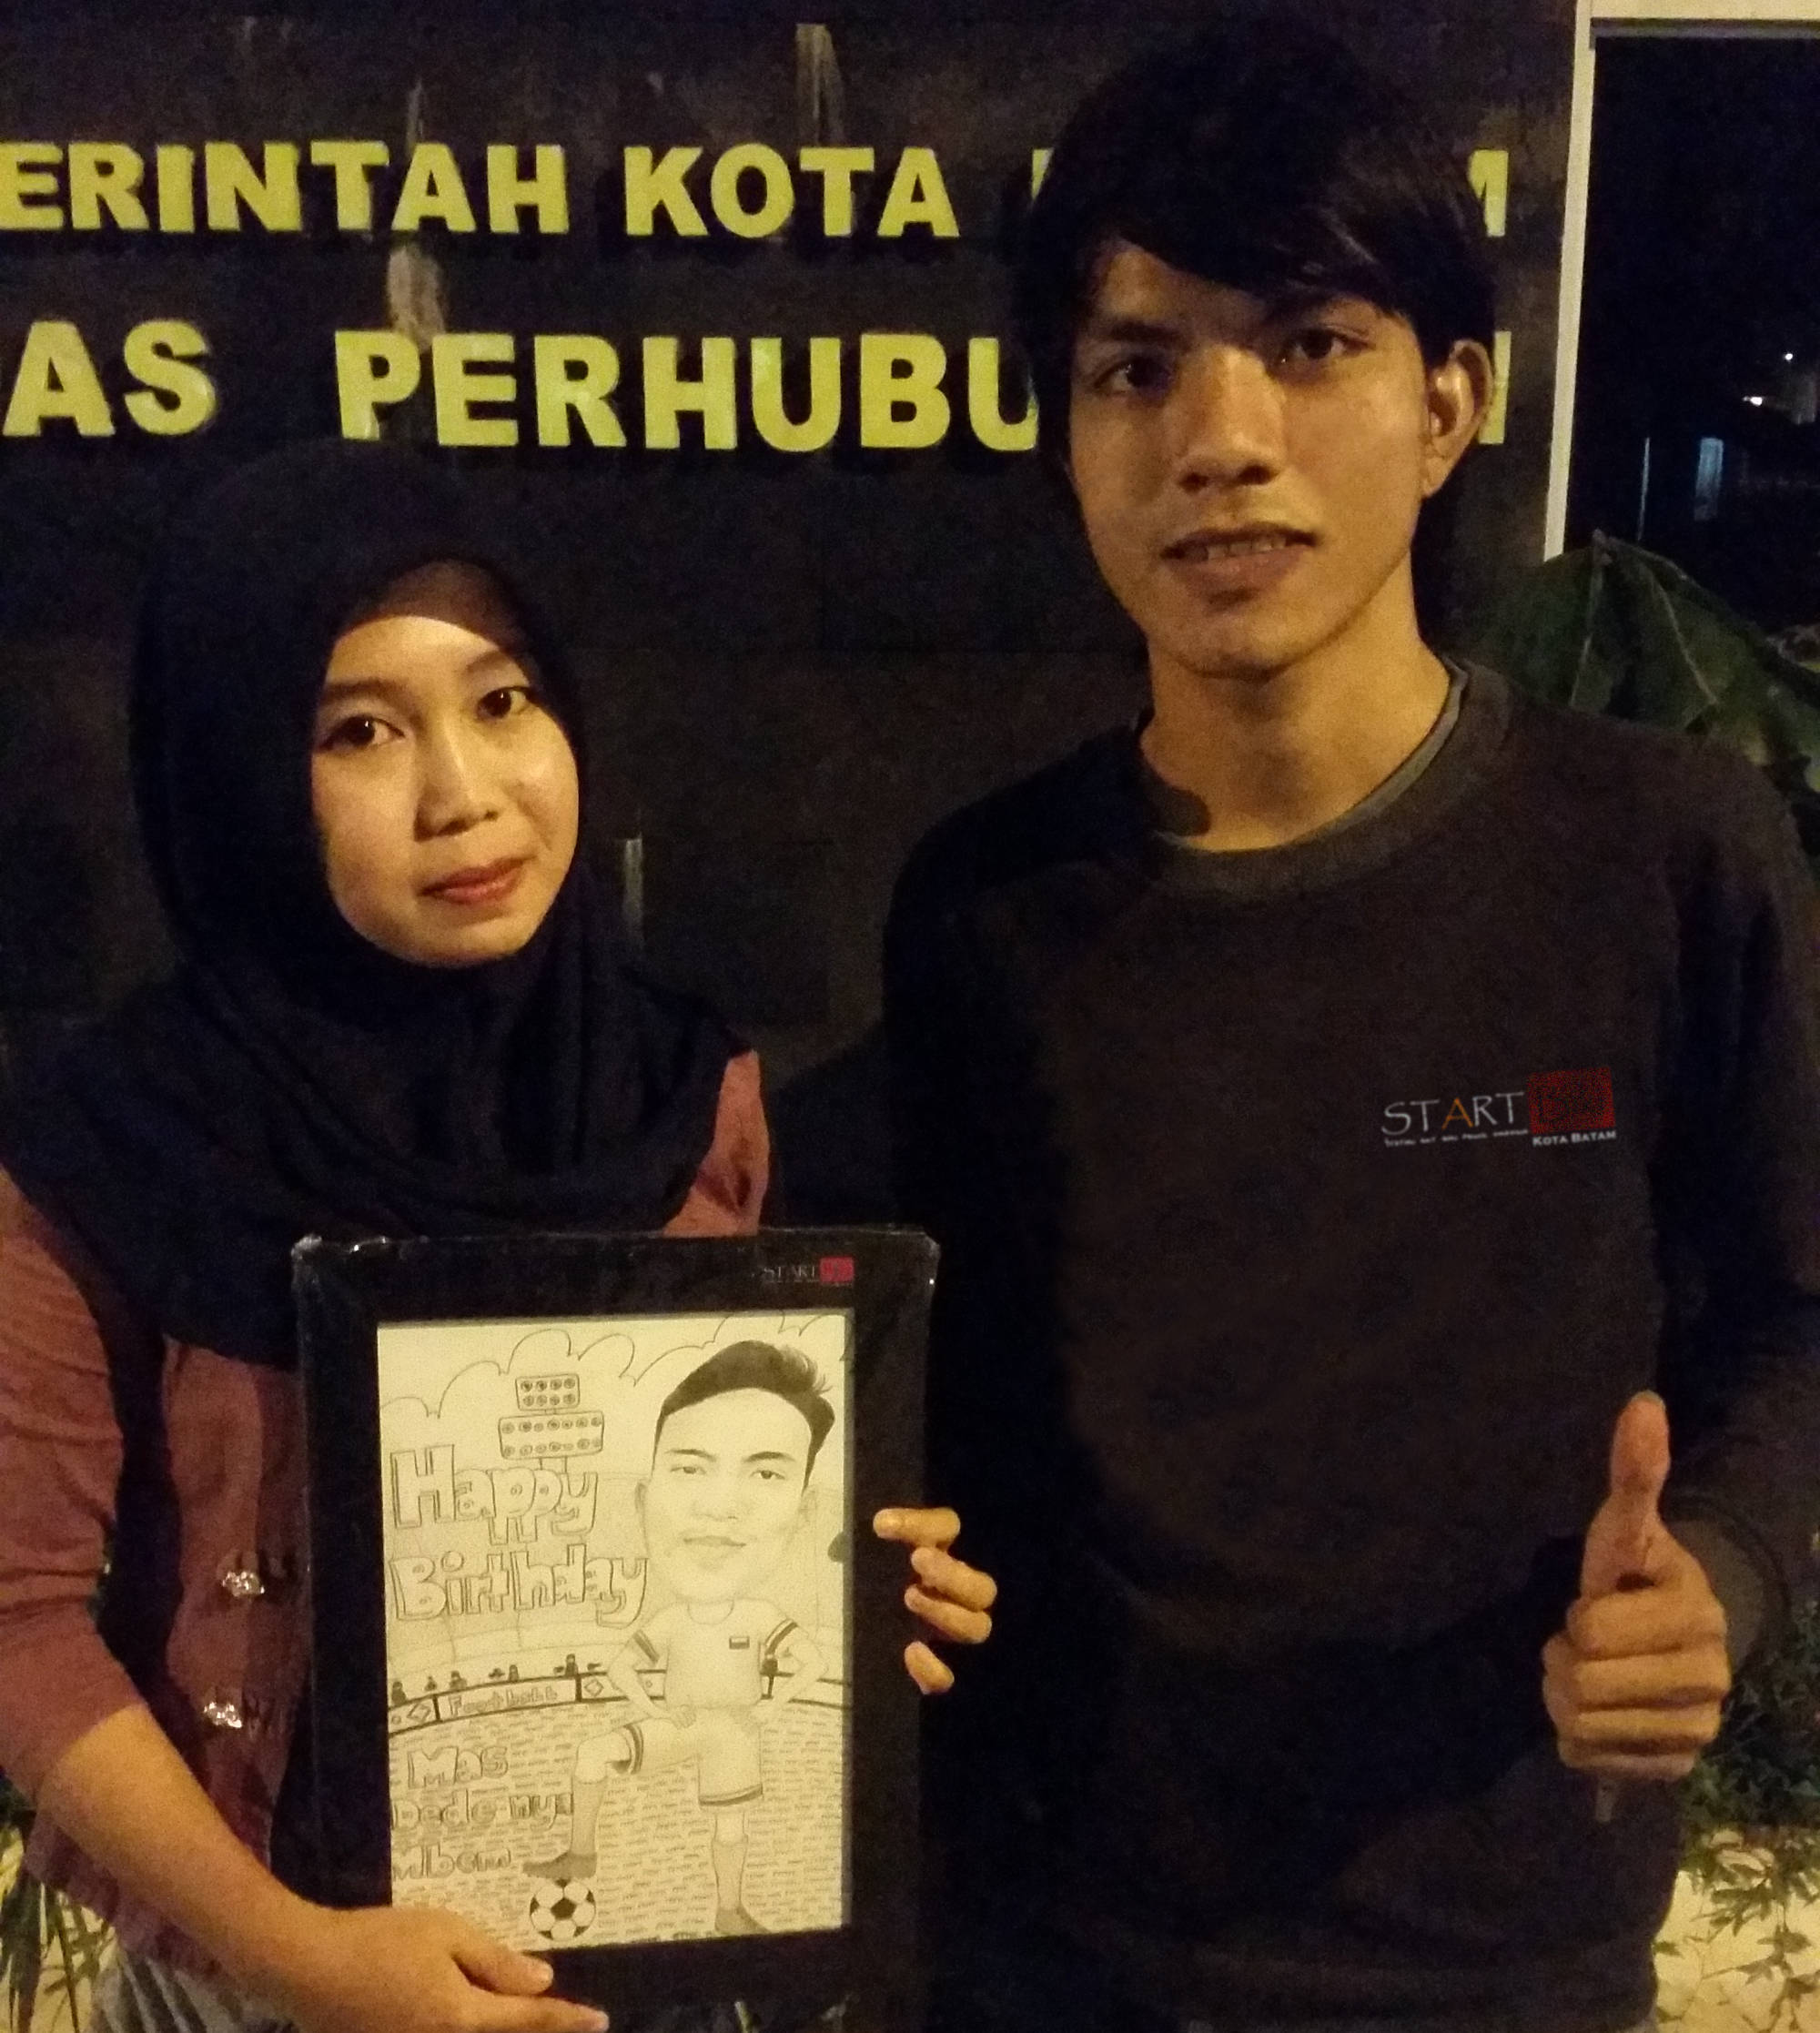 ERINTAH KOTA
AS PERHUBU
START
KOTA BATAM
START
Happy
Birthday
Football
Mas